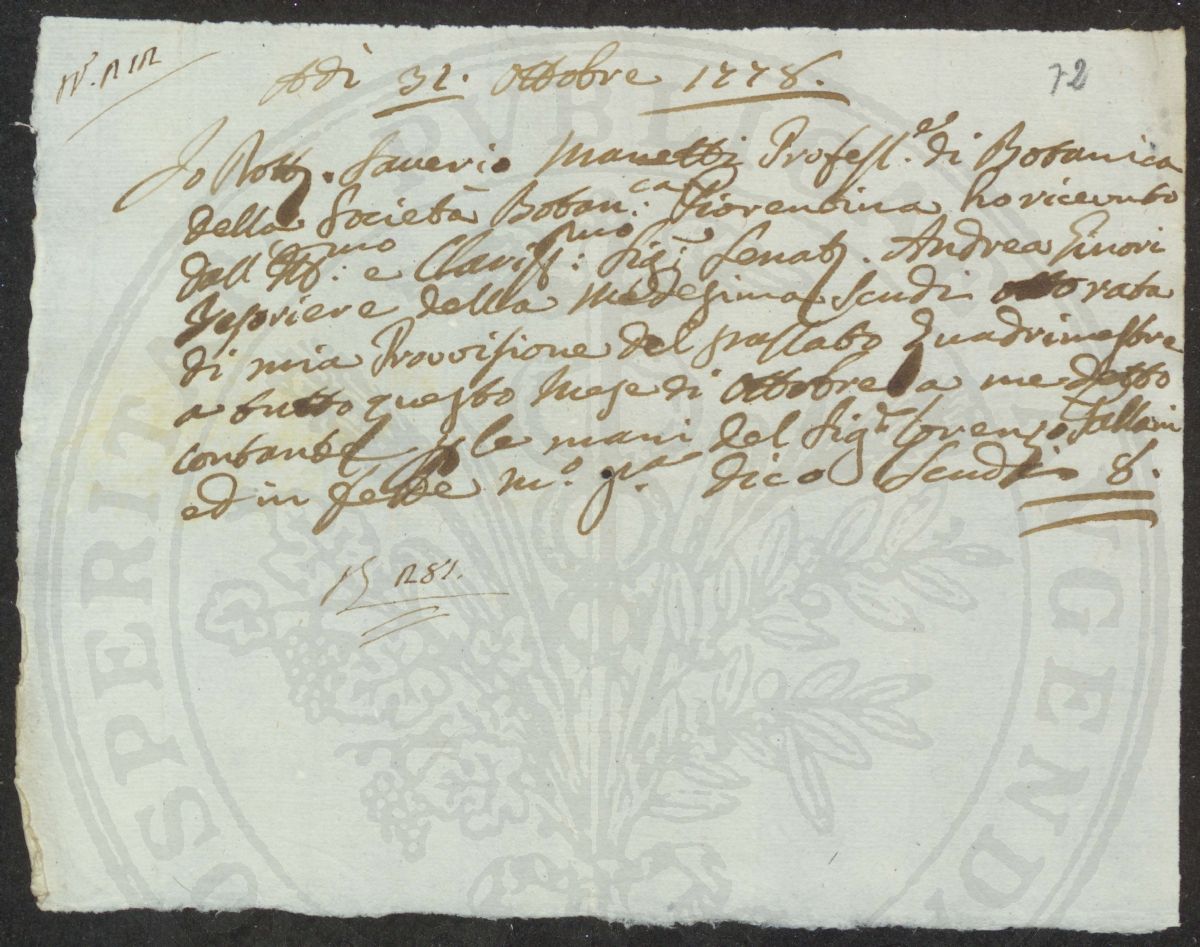 Adì 31. Ottobre 1778.
72
Io Dott. Saverio Manetti Profess.re di Botanica
della Società Botan.ca Fiorentina ho ricevuto
dall' Ill.mo e Clariss.mo Sig.r Senat. Andrea Ginori
Tesoriere della medesima Scudi otto rata
di mia Provvisione del passato Quadrimestre
a tutto questo Mese di Ottobre a me detto
contanti p le mani del Sig.r Lorenzo
ed in fede m.o p.a dico Scudi 8.
PROSPERITATI PVBLICAE AVGENDAE